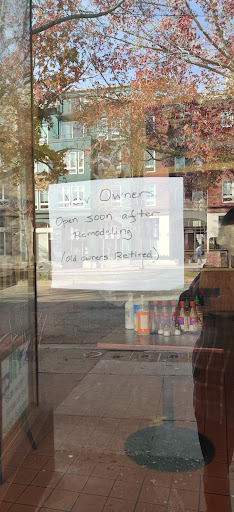 Owners
Open soon after
Remodeling
(old owners Retired)